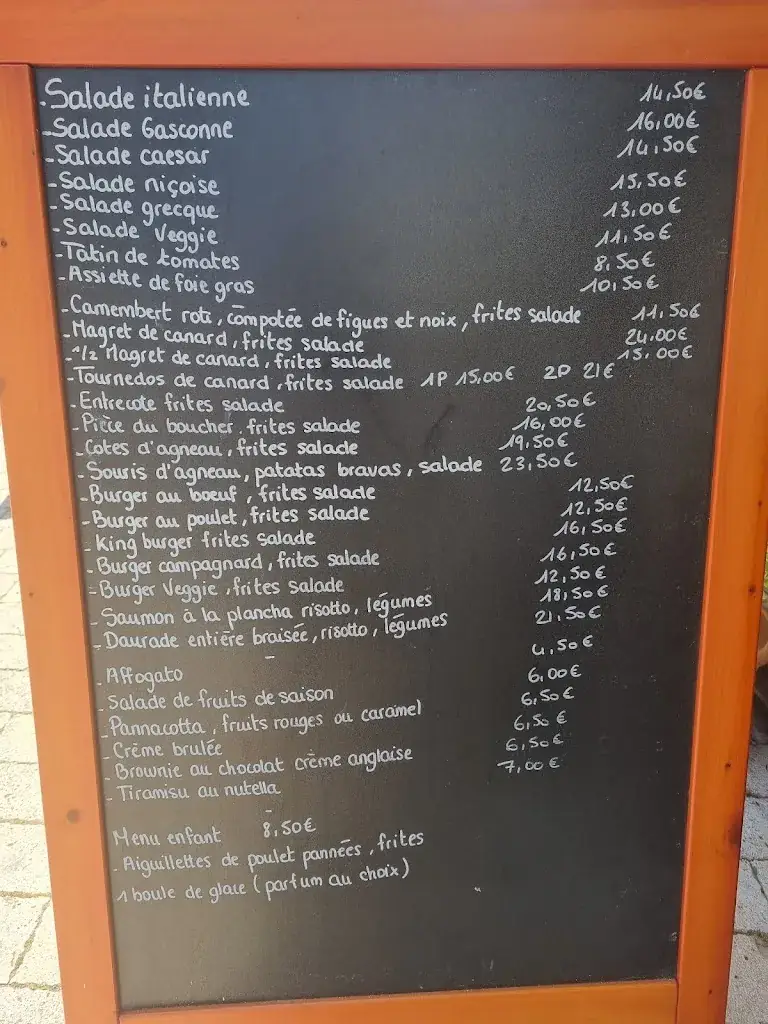 - Salade italienne 14,50€
- Salade Gasconne 16,00€
- Salade caesar 14,50€
- Salade niçoise 15,50€
- Salade grecque 13,00€
- Salade Veggie 11,50€
- Tatin de tomates 8,50€
- Assiette de foie gras 10,50€
- Camembert roti, compotée de figues et noix, frites salade 11,50€
- Magret de canard, frites salade 24.00€
- 1/2 Magret de canard, frites salade 15,00€
- Tournedos de canard, frites salade 1P 15,00€ 2P 21€
- Entrecote frites salade 20,50€
- Pièce du boucher, frites salade 16,00€
- Cotes d'agneau, frites salade 19,50€
- Souris d'agneau, patatas bravas, salade 23,50€
- Burger au boeuf, frites salade 12,50€
- Burger au poulet, frites salade 12,50€
- King burger frites salade 16,50€
- Burger campagnard, frites salade 16,50€
- Burger Veggie, frites salade 12,50€
- Saumon à la plancha risotto, légumes 18,50€
- Daurade entière braisée, risotto, légumes 21,50€
-
- Affogato 4,50€
- Salade de fruits de saison 6,00€
- Pannacotta, fruits rouges ou caramel 6,50€
- Crème brulée 6,50€
- Brownie au chocolat crème anglaise 6,50€
- Tiramisu au nutella 7,00€
-
Menu enfant 8,50€
- Aiguillettes de poulet pannées, frites
1 boule de glace (parfum au choix)